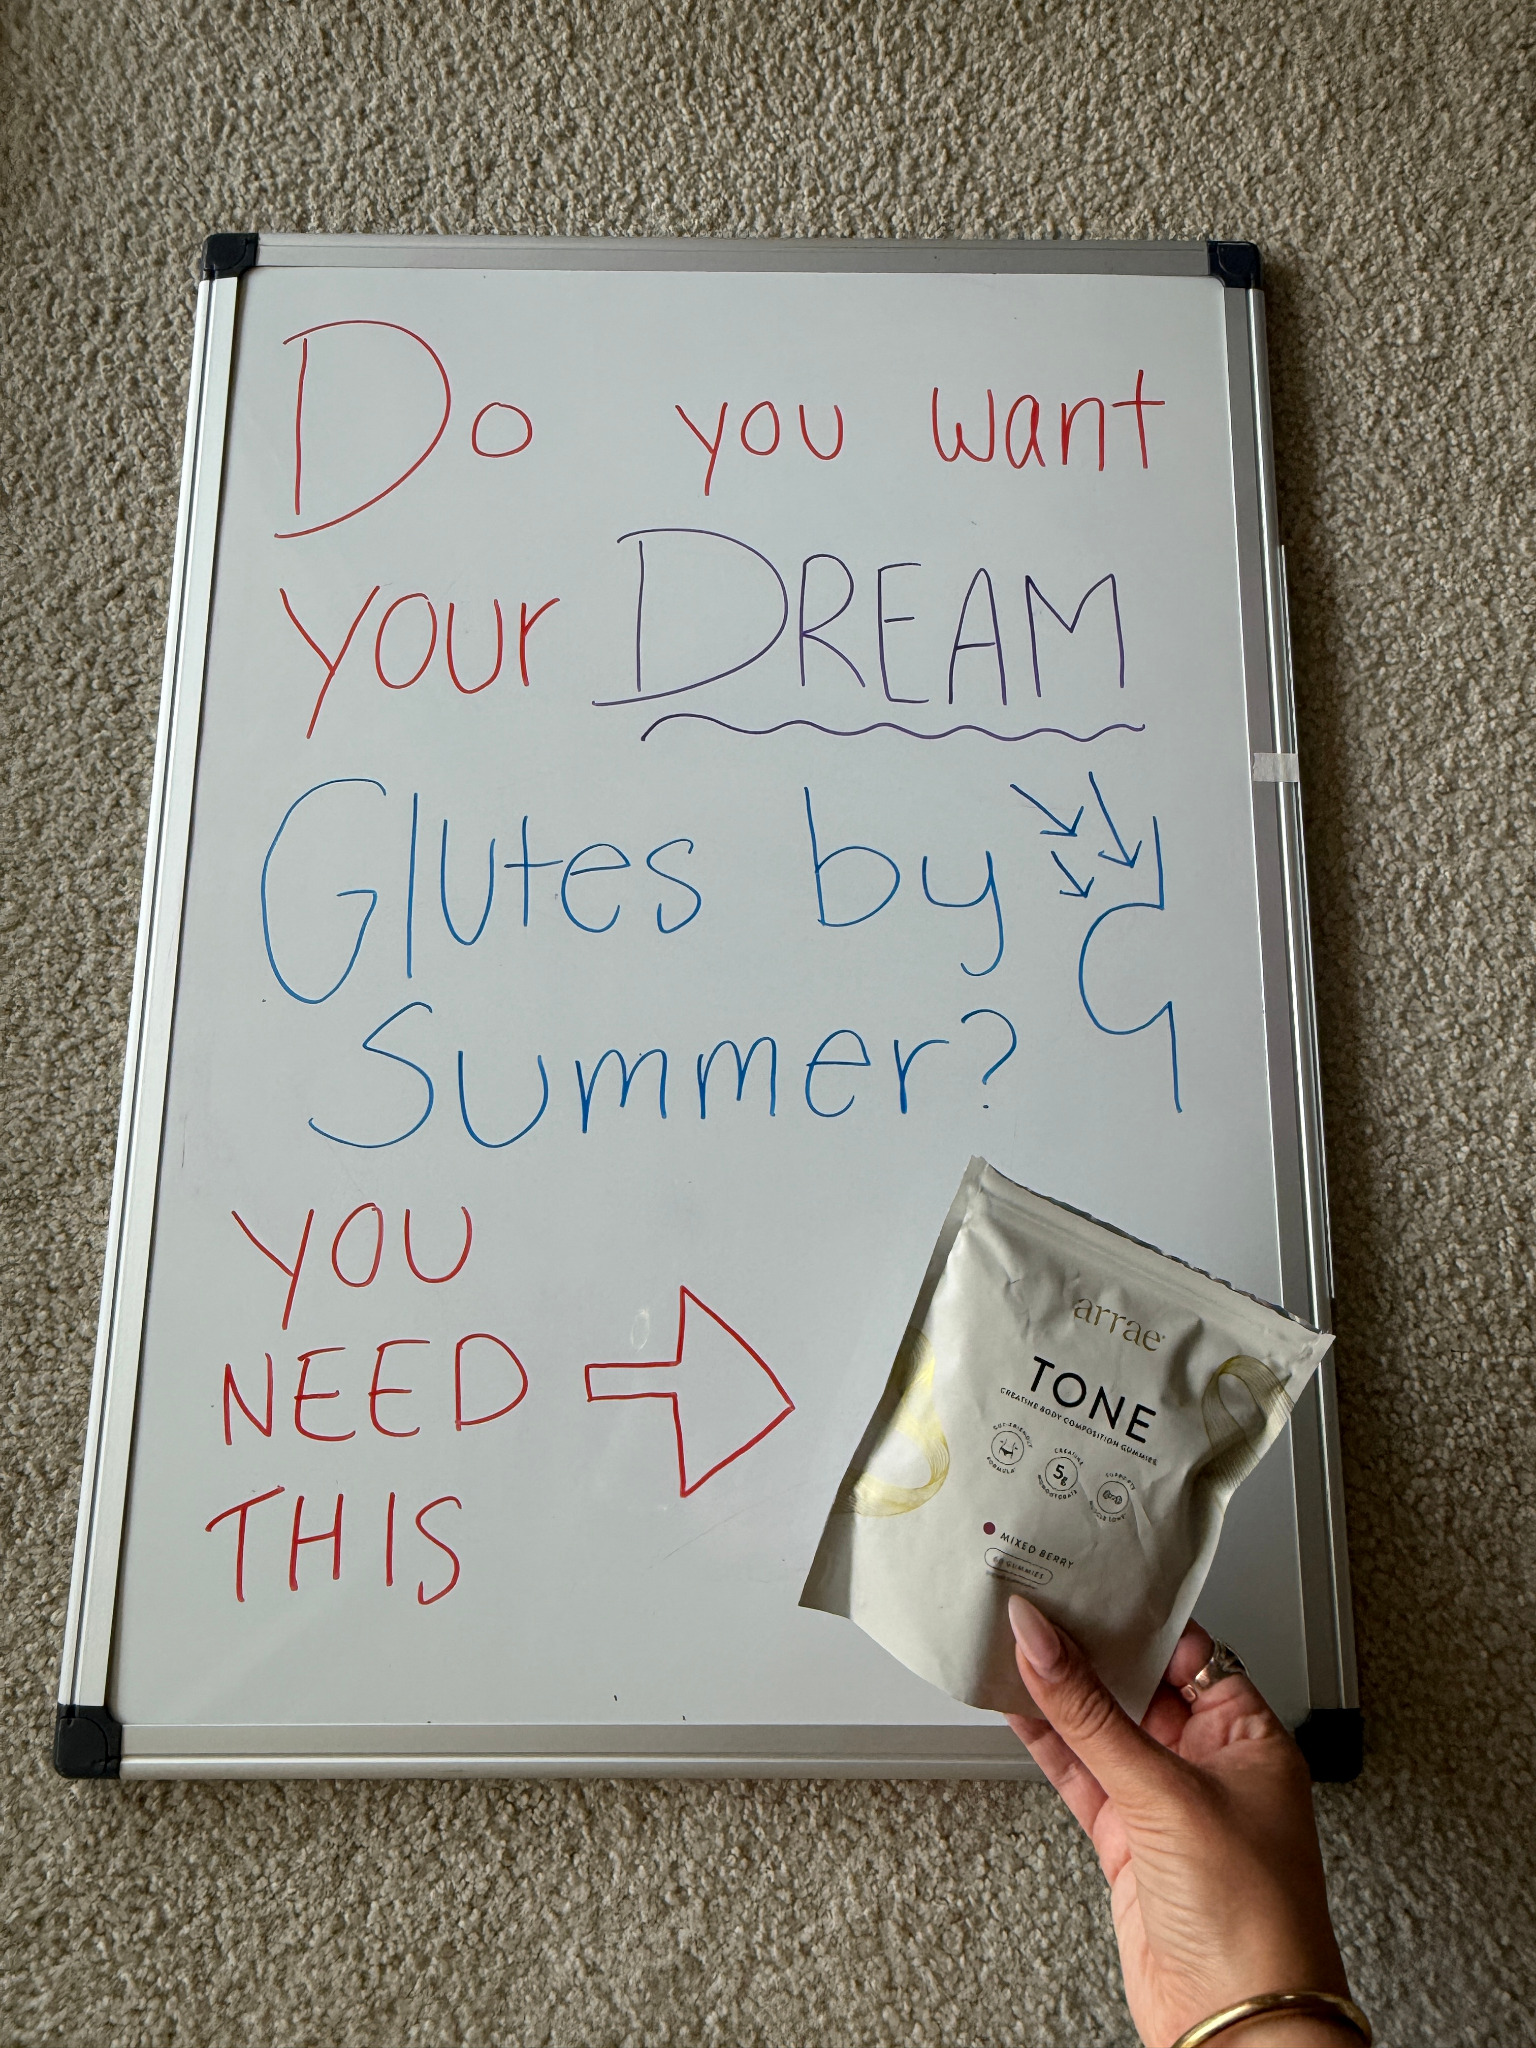 Do you want
your DREAM
Glutes by
Summer?
YOU
NEED
THIS
arrae
TONE
CREATINE BODY COMPOSITION GUMMIES
GUT-FRIENDLY
FORMULA
CREATINE
5g
MONOHYDRATE
SUPPORTS
MUSCLE TONE
MIXED BERRY
GUMMIES